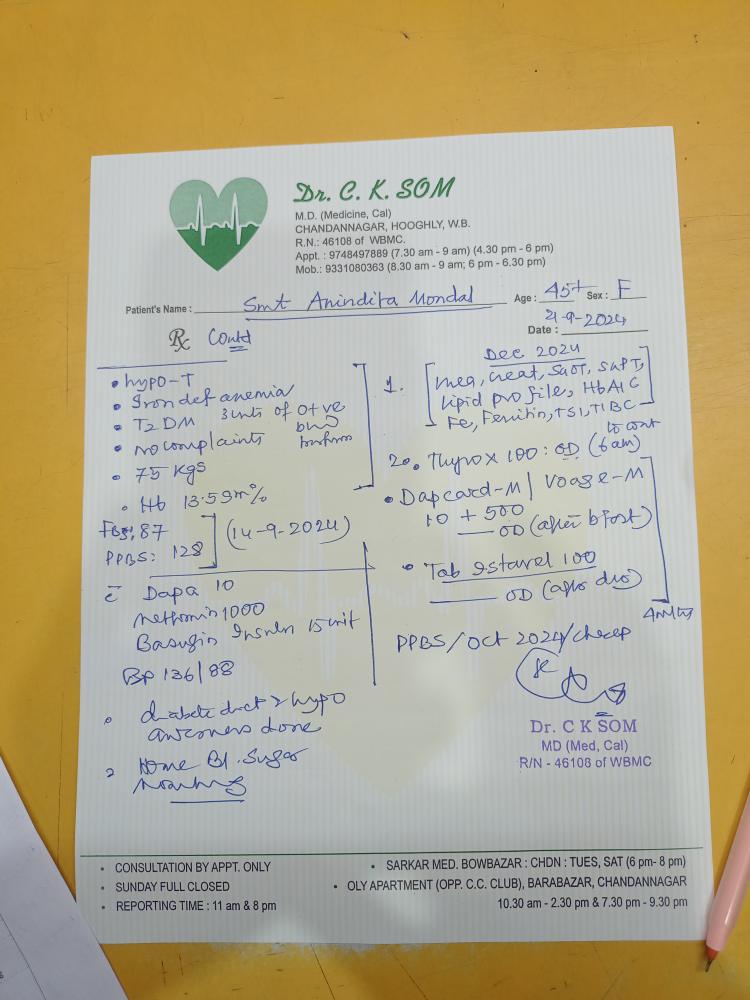 Dr. C. K. SOM
M.D. (Medicine, Cal)
CHANDANNAGAR, HOOGHLY, W.B.
R.N.: 46108 of WBMC.
Appt. : 9748497889 (7.30 am - 9 am) (4.30 pm - 6 pm)
Mob.: 9331080363 (8.30 am - 9 am; 6 pm - 6.30 pm)
Patient's Name : Smt Anindita Mondal Age : 45+ Sex : F
Date : 21-9-2024
Rx Contd
• hypo-T
• Iron def anemia
• T2DM 3 units of O+ve
• No complaints
• 75 kgs
• Hb 13.5gm%
FBS: 87
PPBS: 128 (14-9-2024)
c̄ Dapa 10
Metformin 1000
Basugin Insulin 15 unit
BP 136/88
diabetic diet & hypo
awareness done
Home Bl. Sugar
Dec 2024
1. Urea, Creat, SGOT, SGPT,
Lipid profile, HbA1C
Fe, Ferritin, TSI, TIBC
to cont
2. • Thyrox 100 : OD (6am)
• Dapcard-M | Voage-M
10 + 500
OD (after bfast)
• Tab Istavel 100
OD (after
PPBS/Oct 2024/
Dr. C K SOM
MD (Med, Cal)
R/N - 46108 of WBMC
• CONSULTATION BY APPT. ONLY
• SUNDAY FULL CLOSED
• REPORTING TIME : 11 am & 8 pm
• SARKAR MED. BOWBAZAR : CHDN : TUES, SAT (6 pm- 8 pm)
• OLY APARTMENT (OPP. C.C. CLUB), BARABAZAR, CHANDANNAGAR
10.30 am - 2.30 pm & 7.30 pm - 9.30 pm